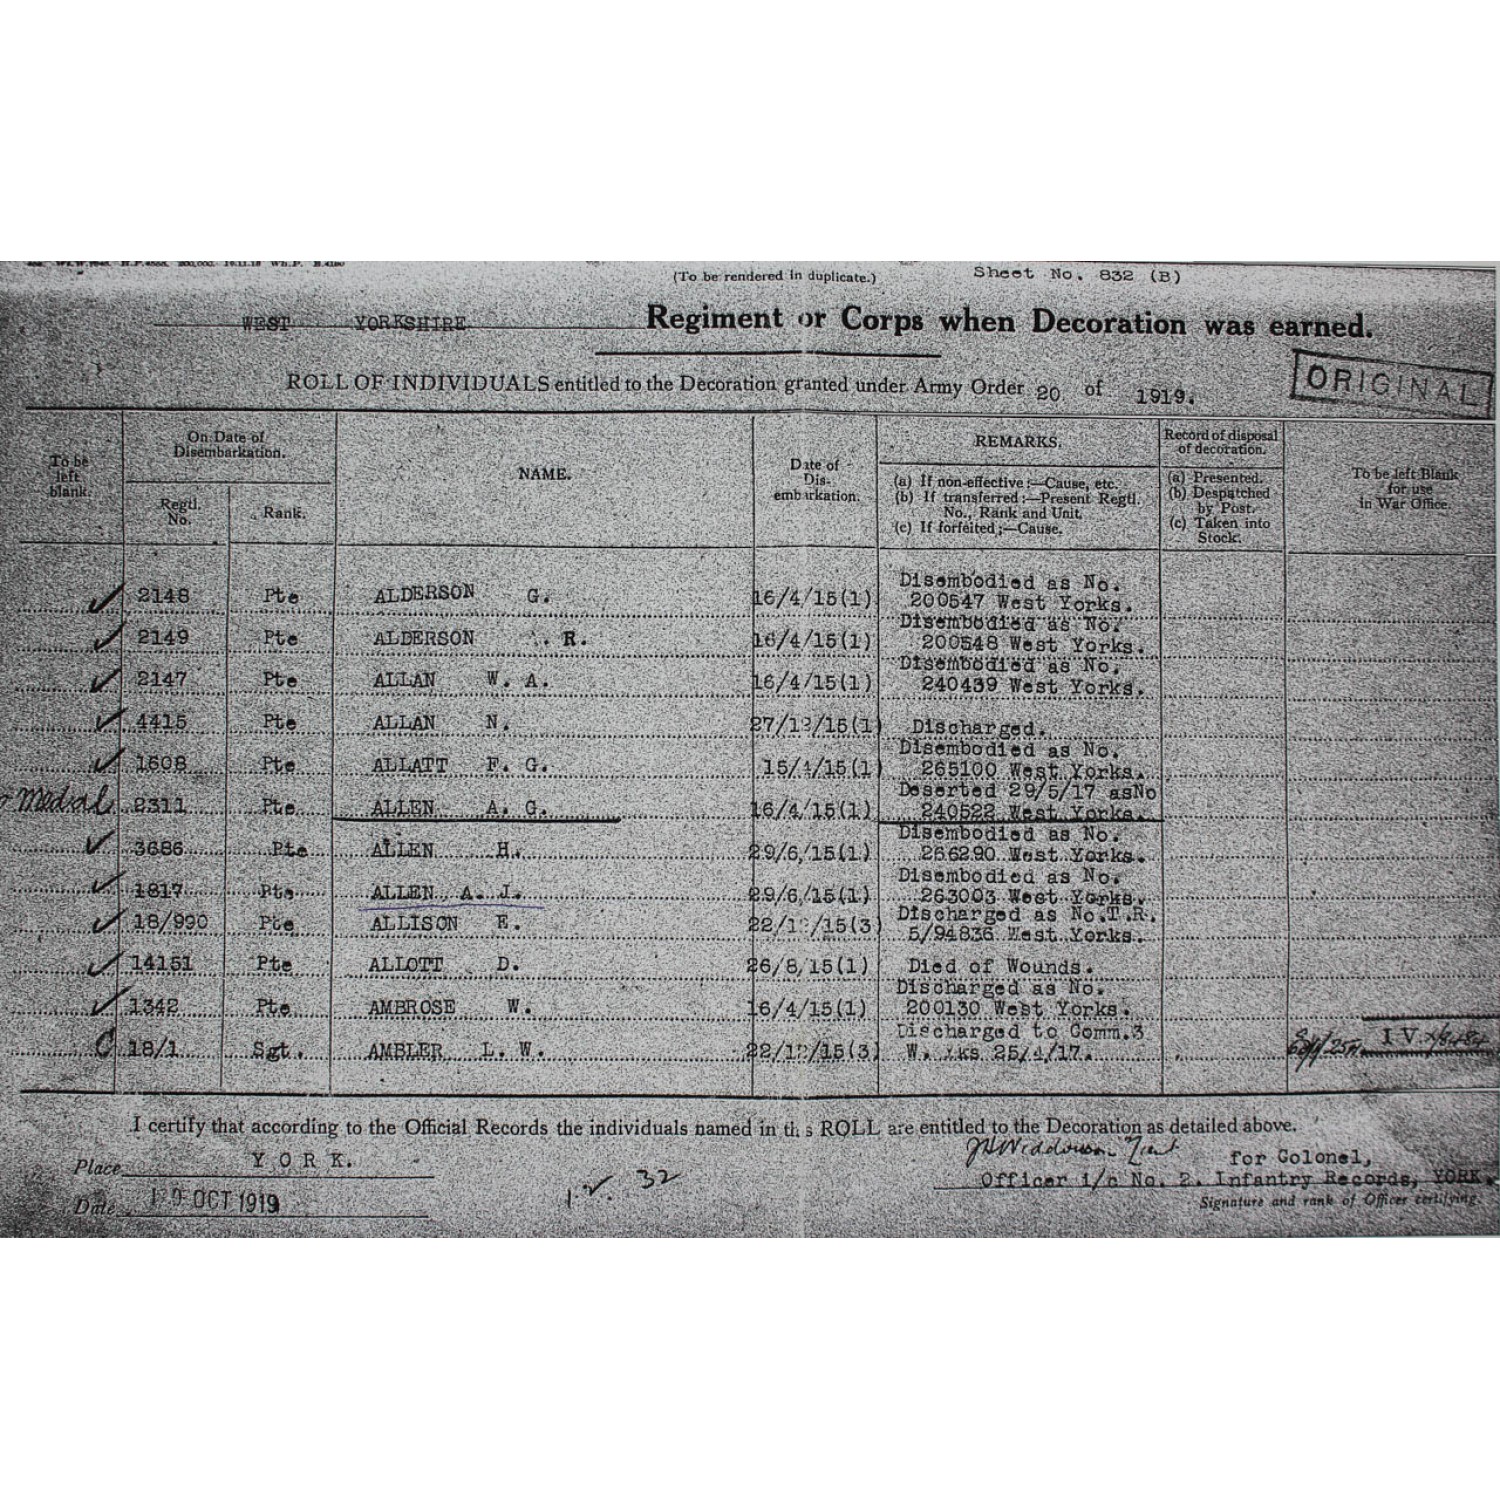 (To be rendered in duplicate.) Sheet No. 832 (B)
WEST YORKSHIRE Regiment or Corps when Decoration was earned.
ROLL OF INDIVIDUALS entitled to the Decoration granted under Army Order 20 of 1919.
ORIGINAL
To be left blank.
On Date of Disembarkation.
Regtl. No.
Rank.
NAME.
Date of Disembarkation.
REMARKS.
(a) If non-effective:—Cause, etc.
(b) If transferred:—Present Regtl.
No., Rank and Unit.
(c) If forfeited;—Cause.
Record of disposal of decoration.
(a) Presented.
(b) Despatched by Post.
(c) Taken into Stock.
To be left Blank
for use
in War Office.
2148 Pte ALDERSON G. 16/4/15(1) Disembodied as No. 200547 West Yorks.
2149 Pte ALDERSON R. 16/4/15(1) Disembodied as No. 200548 West Yorks.
2147 Pte ALLAN W. A. 16/4/15(1) Disembodied as No. 240439 West Yorks.
4415 Pte ALLAN N. 27/12/15(1) Discharged.
1608 Pte ALLATT F. G. 15/4/15(1) Disembodied as No. 265100 West Yorks.
Medal 2311 Pte ALLEN A. G. 16/4/15(1) Deserted 29/5/17 asNo 240522 West Yorks.
3686 Pte ALLEN H. 29/6/15(1) Disembodied as No. 266290 West Yorks.
1817 Pte ALLEN A. J. 29/6/15(1) Disembodied as No. 263003 West Yorks.
18/990 Pte ALLISON E. 22/12/15(3) Discharged as No.T.R. 5/94836 West Yorks.
14151 Pte ALLOTT D. 26/8/15(1) Died of Wounds.
1342 Pte AMBROSE W. 16/4/15(1) Discharged as No. 200130 West Yorks.
C 18/1 Sgt. AMBLER L. W. 22/12/15(3) Discharged to Comm.3 W. Yks 25/4/17. I V
I certify that according to the Official Records the individuals named in this ROLL are entitled to the Decoration as detailed above.
for Colonel,
Place YORK.
Officer i/c No. 2. Infantry Records, YORK.
Date OCT 1919
32
Signature and rank of Officer certifying.